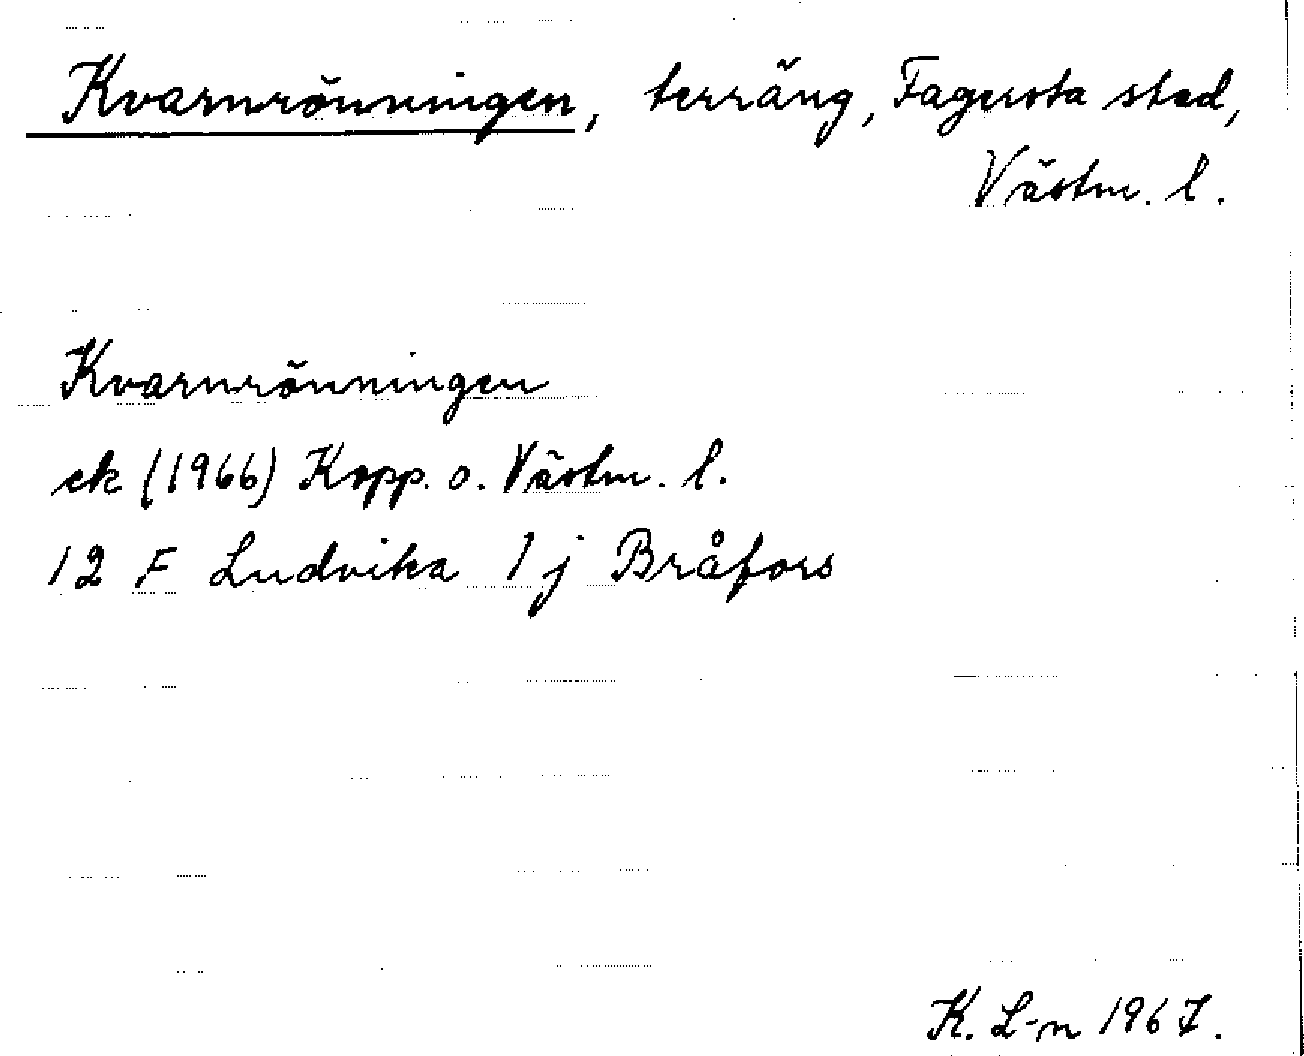 Kvarnrönningen, terräng, Fagersta stad,
Västm. l.
Kvarnrönningen
ek (1966) Kopp. o. Västm. l.
12 F Ludvika 1 j Bråfors
K. L-n 1967.